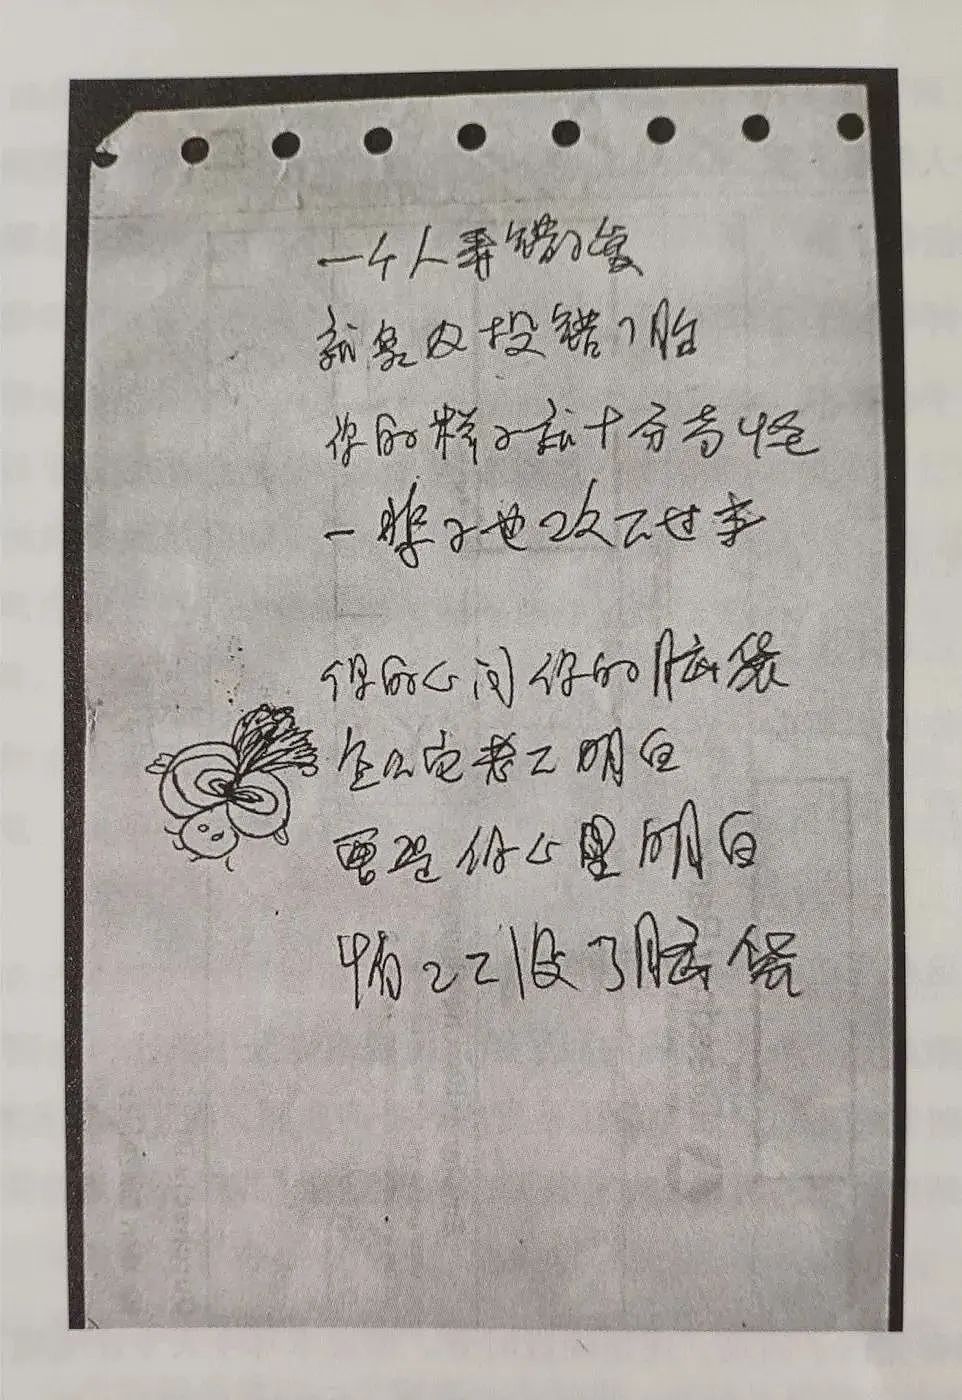 一个人弄错了爱
就象又投错了胎
你的样子就十分奇怪
一辈子也改不过来
你的心问你的脑袋
怎么老不明白
要是你心里明白
怕已没了脑袋